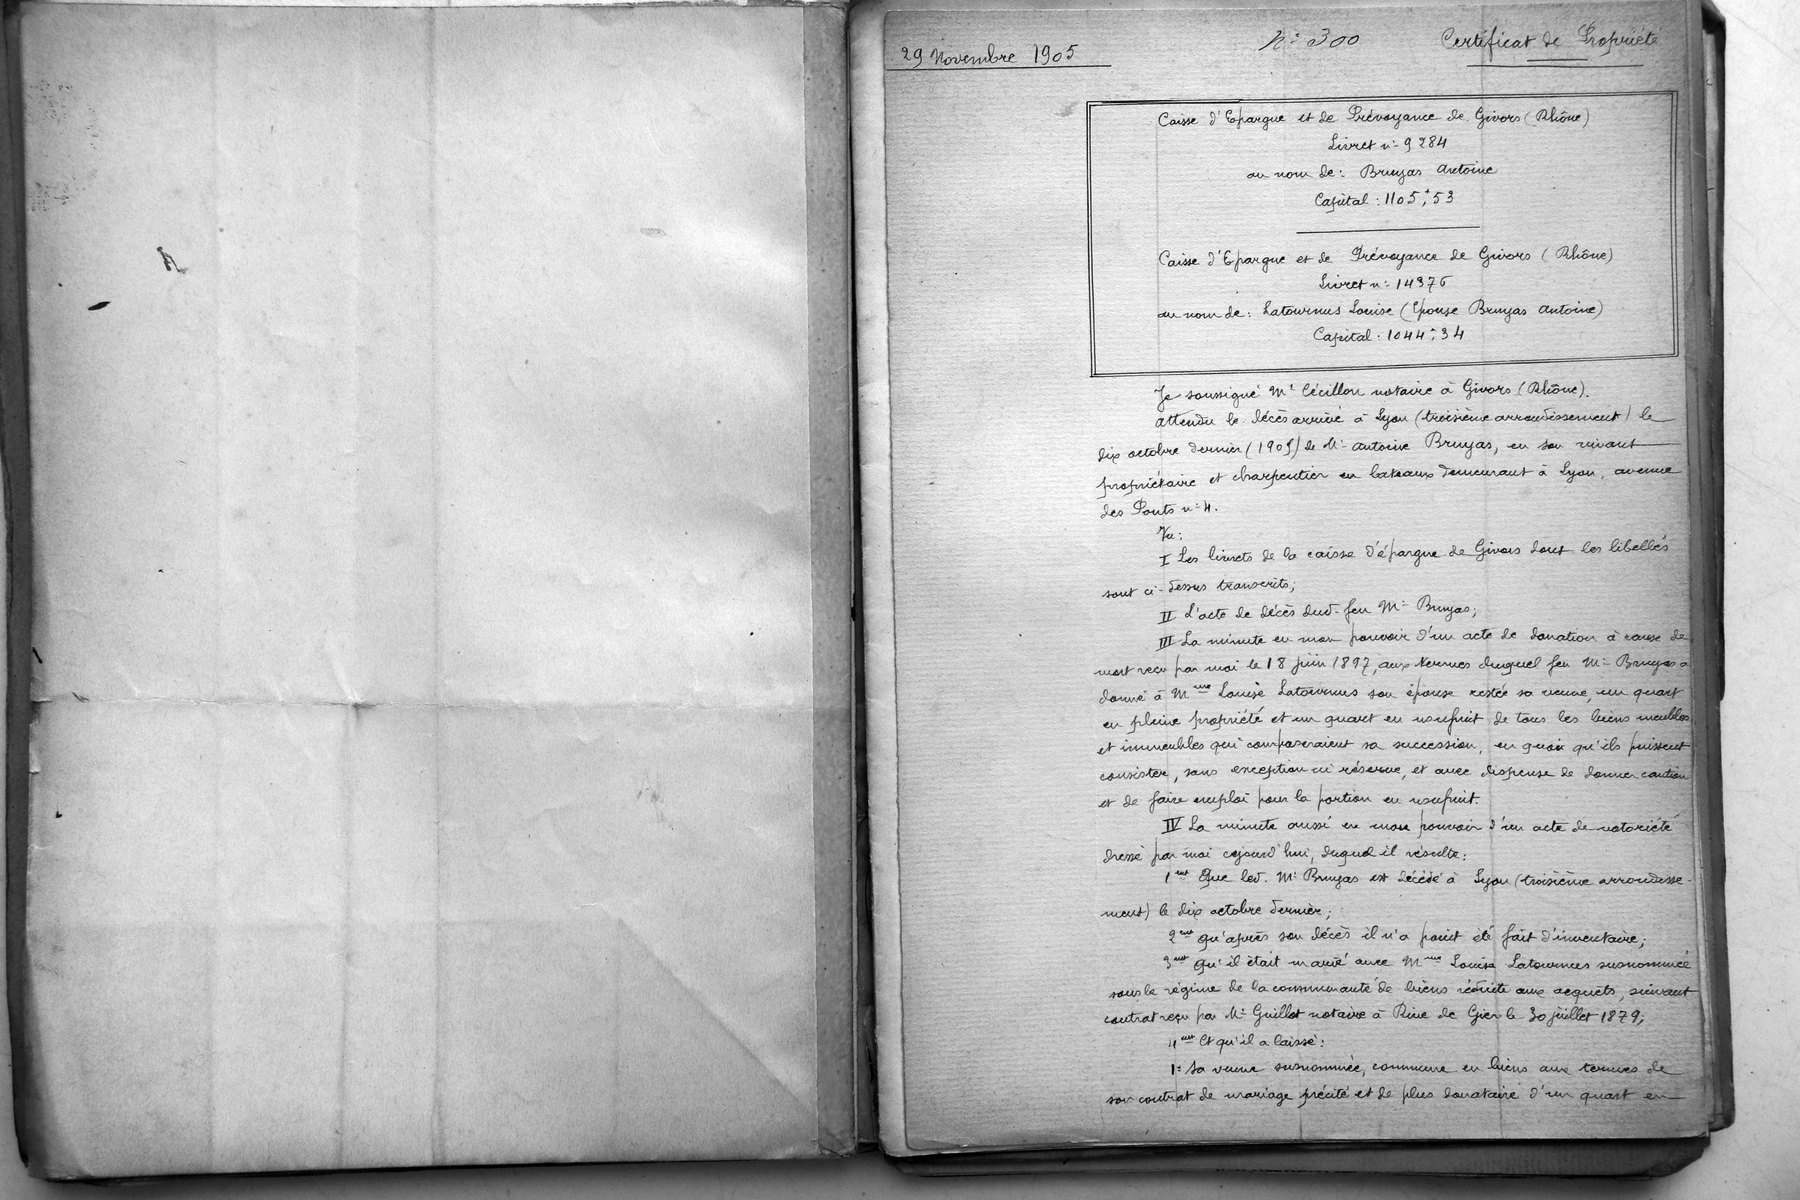 29 Novembre 1905
N° 300
Certificat de Propriété
Caisse d'Epargne et de Prévoyance de Givors (Rhône)
Livret n° 9284
au nom de : Bruyas Antoine
Capital : 1105f,53
Caisse d'Epargne et de Prévoyance de Givors (Rhône)
Livret n° 14376
au nom de : Latournus Louise (Epouse Bruyas Antoine)
Capital : 1044f,34
Je soussigné Me Cécillon notaire à Givors (Rhône).
Attendu le décès arrivé à Lyon (troisième arrondissement) le
dix octobre dernier (1905) de Mr Antoine Bruyas, en son vivant
propriétaire et charpentier en bateaux demeurant à Lyon, avenue
des Ponts n° 4.
Vu :
I Les livrets de la caisse d'épargne de Givors dont les libellés
sont ci-dessus transcrits;
II L'acte de décès dud. feu Mr Bruyas;
III La minute en mon pouvoir d'un acte de donation à cause de
mort reçu par moi le 18 juin 1897, aux termes duquel feu Mr Bruyas a
donné à Mme Louise Latournus son épouse restée sa veuve, un quart
en pleine propriété et un quart en usufruit de tous les biens meubles
et immeubles qui composeraient sa succession, en quoi qu'ils puissent
consister, sans exception ni réserve, et avec dispense de donner caution
et de faire emploi pour la portion en usufruit.
IV La minute aussi en mon pouvoir d'un acte de notoriété
dressé par moi cejourd'hui, duquel il résulte :
1ent Que led. Mr Bruyas est décédé à Lyon (troisième arrondisse-
ment) le dix octobre dernier;
2ent qu'après son décès il n'a point été fait d'inventaire;
3ent Qu'il était marié avec Mme Louise Latournus susnommée
sous le régime de la communauté de biens réduite aux acquets, suivant
contrat reçu par Me Guillot notaire à Rive de Gier le 30 juillet 1879;
4ent Et qu'il a laissé :
1° Sa veuve susnommée, commune en biens aux termes de
son contrat de mariage précité et de plus donataire d'un quart en